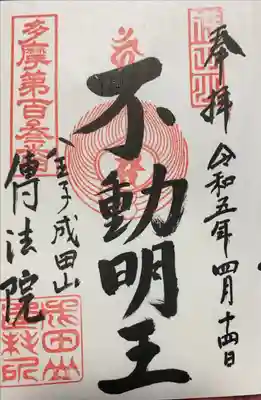 奉拝
令和五年四月十四日
不動明王
八王子成田山
傳法院
多摩第百叁番